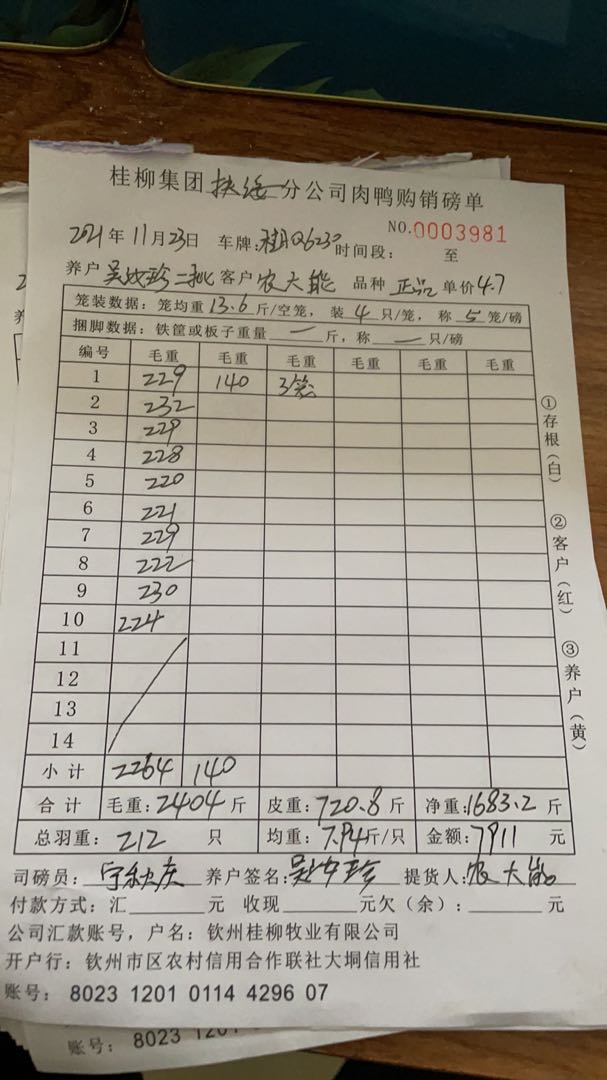 桂柳集团扶绥分公司肉鸭购销磅单
NO.0003981
2021年11月23日 车牌:桂Q6230 时间段: 至
养户 吴 珍二批 客户 农大能 品种 正品 单价 4.7
笼装数据:笼均重13.6斤/空笼,装4只/笼,称5笼/磅
捆脚数据:铁筐或板子重量 一 斤,称 一 只/磅
编号 毛重 毛重 毛重 毛重 毛重 毛重
1 229 140 3笼
2 232
3 229
4 228
5 220
6 221
7 229
8 222
9 230
10 224
11
12
13
14
小计 2264 140
合计 毛重:2404斤 皮重:720.8斤 净重:1683.2斤
总羽重:212 只 均重:7.94斤/只 金额:7911 元
司磅员: 养户签名:吴 珍 提货人:农大能
付款方式:汇 元 收现 元欠(余): 元
公司汇款账号,户名:钦州桂柳牧业有限公司
开户行:钦州市区农村信用合作联社大垌信用社
账号:8023 1201 0114 4296 07
①存根(白)
②客户(红)
③养户(黄)
账号:8023 1201